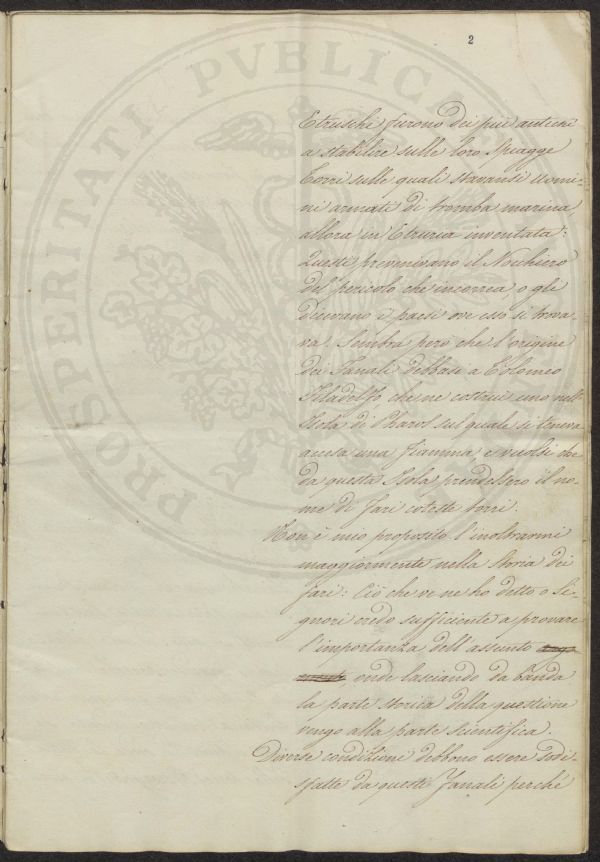 2
Etruschi furono dei più antichi
a stabilire sulle loro Spiagge
Torri sulle quali stavansi Uomi-
ni armati di tromba marina,
allora in Etruria inventata:
Questi prevenivano il Nochiero
del pericolo che incorrea, o gli
dicevano i paesi ove esso si trova-
va. Sembra però che l'origine
dei Fanali debbasi a Tolomeo
Filadelfo che ne costruì uno nell'
Isola di Pharos sul quale si teneva
accesa una fiamma, e vuolsi che
da questa Isola prendessero il no-
me di fari coteste torri.
Non è mio proposito l'inoltrarmi
maggiormente nella Storia dei
fari: Ciò che ve ne ho detto o Si-
gnori credo sufficiente a provare
l'importanza dell'assunto
onde lasciando da banda
la parte storica della questione
vengo alla parte scientifica.
Diverse condizione debbono essere sodi-
sfatte da questi Fanali perché
PROSPERITATI PVBLICAE